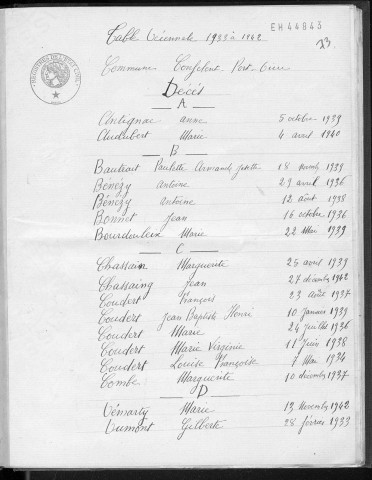 EH44843
Table Décennale 1933 à 1942
23.
Commune Confolent Port-Dieu
Décès
A
Antignac Anne 5 octobre 1939
Audubert Marie 4 avril 1940
B
Bautiart Paulette Armande Josette 18 novemb 1939
Bénézy Antoine 29 avril 1936
Bénézy Antoine 12 août 1938
Bonnet Jean 16 octobre 1936
Bourdouleix Marie 22 Mai 1939
C
Chassain Marguerite 25 avril 1939
Chassaing Jean 27 décembre 1942
Coudert François 23 Août 1937
Coudert Jean Baptiste Henri 10 Janvier 1939
Coudert Marie 24 Juillet 1936
Coudert Marie Virginie 11 Juin 1938
Coudert Louise Françoise 7 Mai 1934
Combe Marguerite 10 décembre 1937
D
Démarty Marie 13 Novembre 1942
Dumont Gilberte 28 février 1933